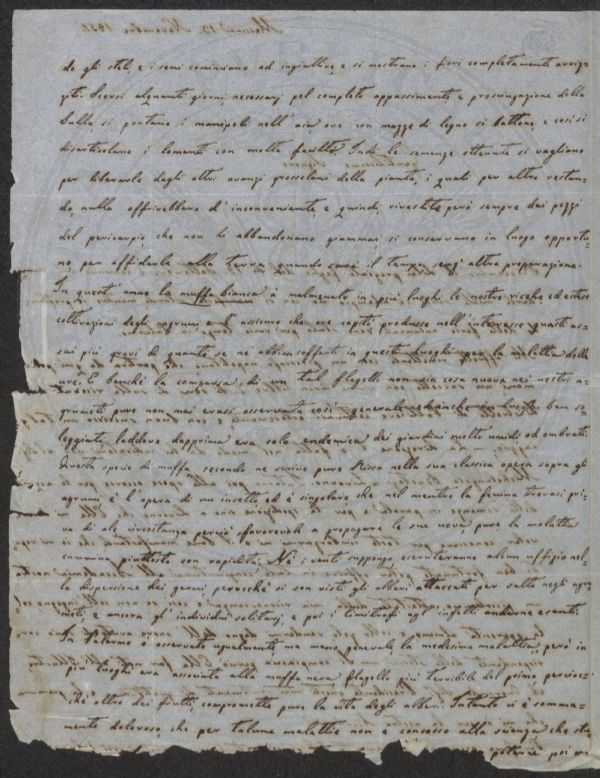 do gli steli, e i semi cominciano ad ingrallire, e si mostrano i fiori completamente avviz-
ziti. Scorsi alquanti giorni, necessarj pel completo appassimento e prosciugazione della
Sulla, si portano i manipoli nell'aia ove con mazze di legno si battono, e così si
disarticolano i lomenti con molta facilità. Indi le semenze ottenute si vagliano
per liberarle dagli altri avanzi grossolani della pianta, i quali per altro restan-
do, nulla offrirebbero d'inconveniente, e quindi rivestite però sempre dai pezzi
del pericarpio, che non li abbandonano giammai si conservano in luogo opportu-
no, per affidarle alla terra quando sarà il tempo, senz'altra preparazione.
In quest'anno la muffa bianca à malmenato in più luoghi le nostre ricche ed estese
coltivazioni degli agrumi e l'assicuro che ove capitò produsse nell'interesse guasti as-
sai più gravi di quanto se ne abbian sofferti in questi luoghi per la malattia delle
uve. E benchè la comparsa di un tal flagello non sia cosa nuova nei nostri a-
grumeti pure non mai erasi osservata così generale ed anche in luoghi ben so-
leggiati, laddove dapprima era solo endemica dei giardini molto umidi ed ombrati.
Questa specie di muffa secondo ne scrive pure Risso nella sua classica opera sopra gli
agrumi è l'opera di un insetto, ed è singolare che nel mentre la femina trovasi pri-
va di ale, circostanza perciò sfavorevole a propagare le sue uova, pure la malattia
cammina piuttosto con rapidità. Nè i venti suppongo eserciteranno alcun uffizio nel-
la dispersione dei germi, perocchè si son visti gli alberi attaccati per salto negli agru-
meti, e ancora gl'individui solitarj, e poi i limitrofi agl'infetti andarne esenti.
In Palermo è osservata ugualmente, ma meno generale, la medesima malattia, però in
più luoghi era associata alla muffa nera flagello più terribile del primo, percioc-
chè oltre dei frutti, compromette pure la vita degli alberi. Intanto si è somma-
mente doloroso, che per talune malattie non è concesso alla scienza, che sta
poterne poi